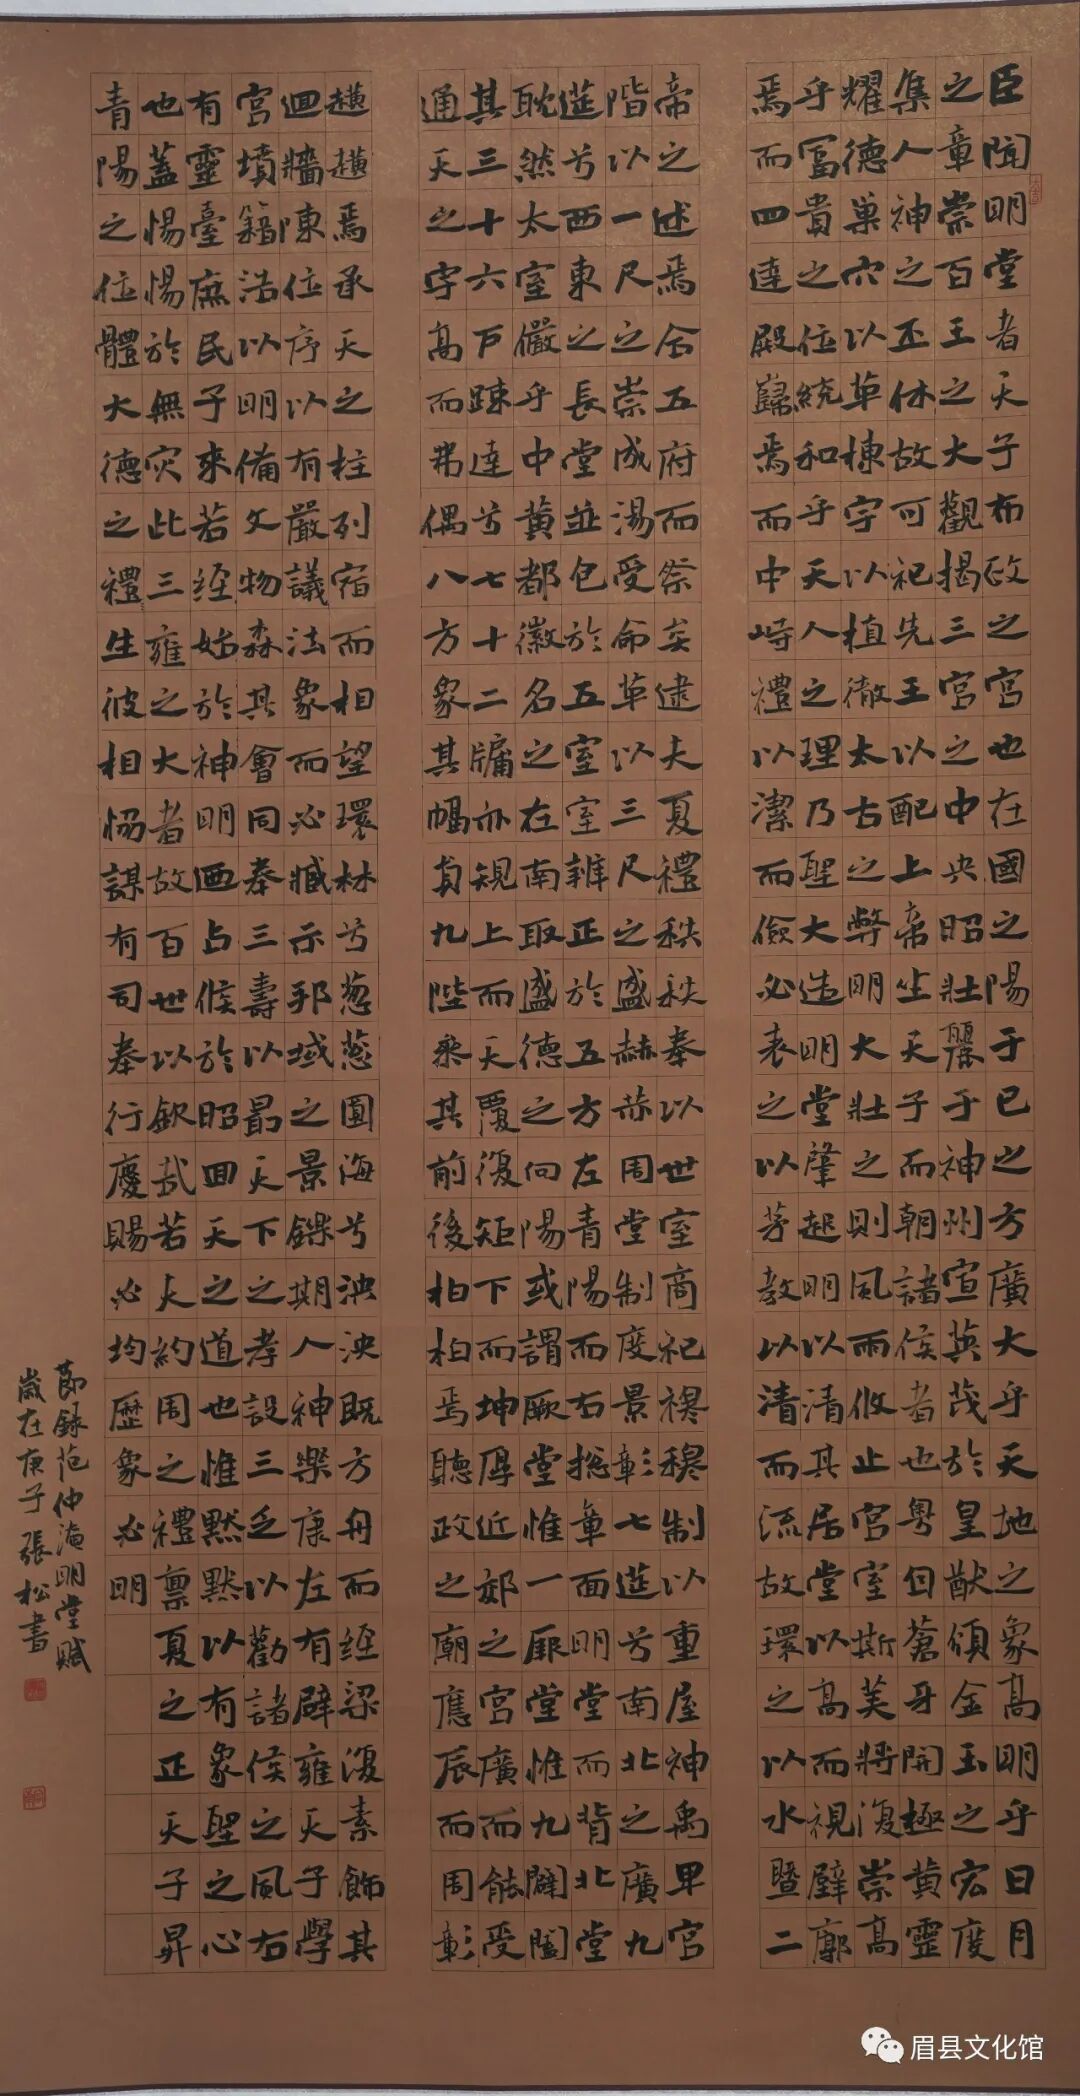 臣聞明堂者天子布政之宮也在國之陽于巳之方廣大乎天地之象高明乎日月
之章崇百王之大觀揭三宮之中央昭壯麗于神州宣英茂於皇猷頌金玉之宏度
集人神之丕休故可祀先王以配上帝坐天子而朝諸侯者也粤自蒼牙開極黃靈
耀德巢穴以革棟宇以植徹太古之弊明大壯之則風雨攸止宮室斯美將復崇高
乎富貴之位統和乎天人之理乃聖大造明堂肇起明以清其居堂以高而視壁廓
焉而四達殿巋焉而中峙禮以潔而儉必表之以茅教以清而流故環之以水暨二
帝之述焉合五府而祭矣逮夫夏禮秩秩奉以世室商祀穆穆制以重屋神禹卑宮
階以一尺之崇成湯受命革以三尺之盛赫赫周堂制度景彰七筵兮南北之廣九
筵兮西東之長堂並包於五室室雜正於五方左青陽而右總章面明堂而背北堂
耽然太室儼乎中黃都徽名之在南取盛德之向陽或謂厥堂惟一厥堂惟九闢闔
其三十六戶疎達兮七十二牖亦規上而天覆復矩下而坤厚近郊之宮廣而能受
通天之字高而弗偶八方象其幅員九陛乘其前後柏柏焉聽政之廟應辰而周彰
趪趪焉承天之柱列宿而相望環林兮葱葱圓海兮泱泱既方舟而經梁復素飾其
迴牆陳位序以有嚴議法象而必臧示邦域之景鑠期人神樂康左有辟雍天子學
宮墳籍浩以明備文物森其會同奉三壽以勗天下之孝設三乏以勸諸侯之風右
有靈臺庶民子來若經始於神明迺占候於昭回天之道也惟默默以有象聖之心
也蓋惕惕於無災此三雍之大者故百世以欽哉若夫約周之禮禀夏之正天子昇
青陽之位體大德之禮生彼相協謀有司奉行慶賜必均歷象必明
節録范仲淹明堂賦
歲在庚子張松書
眉县文化馆